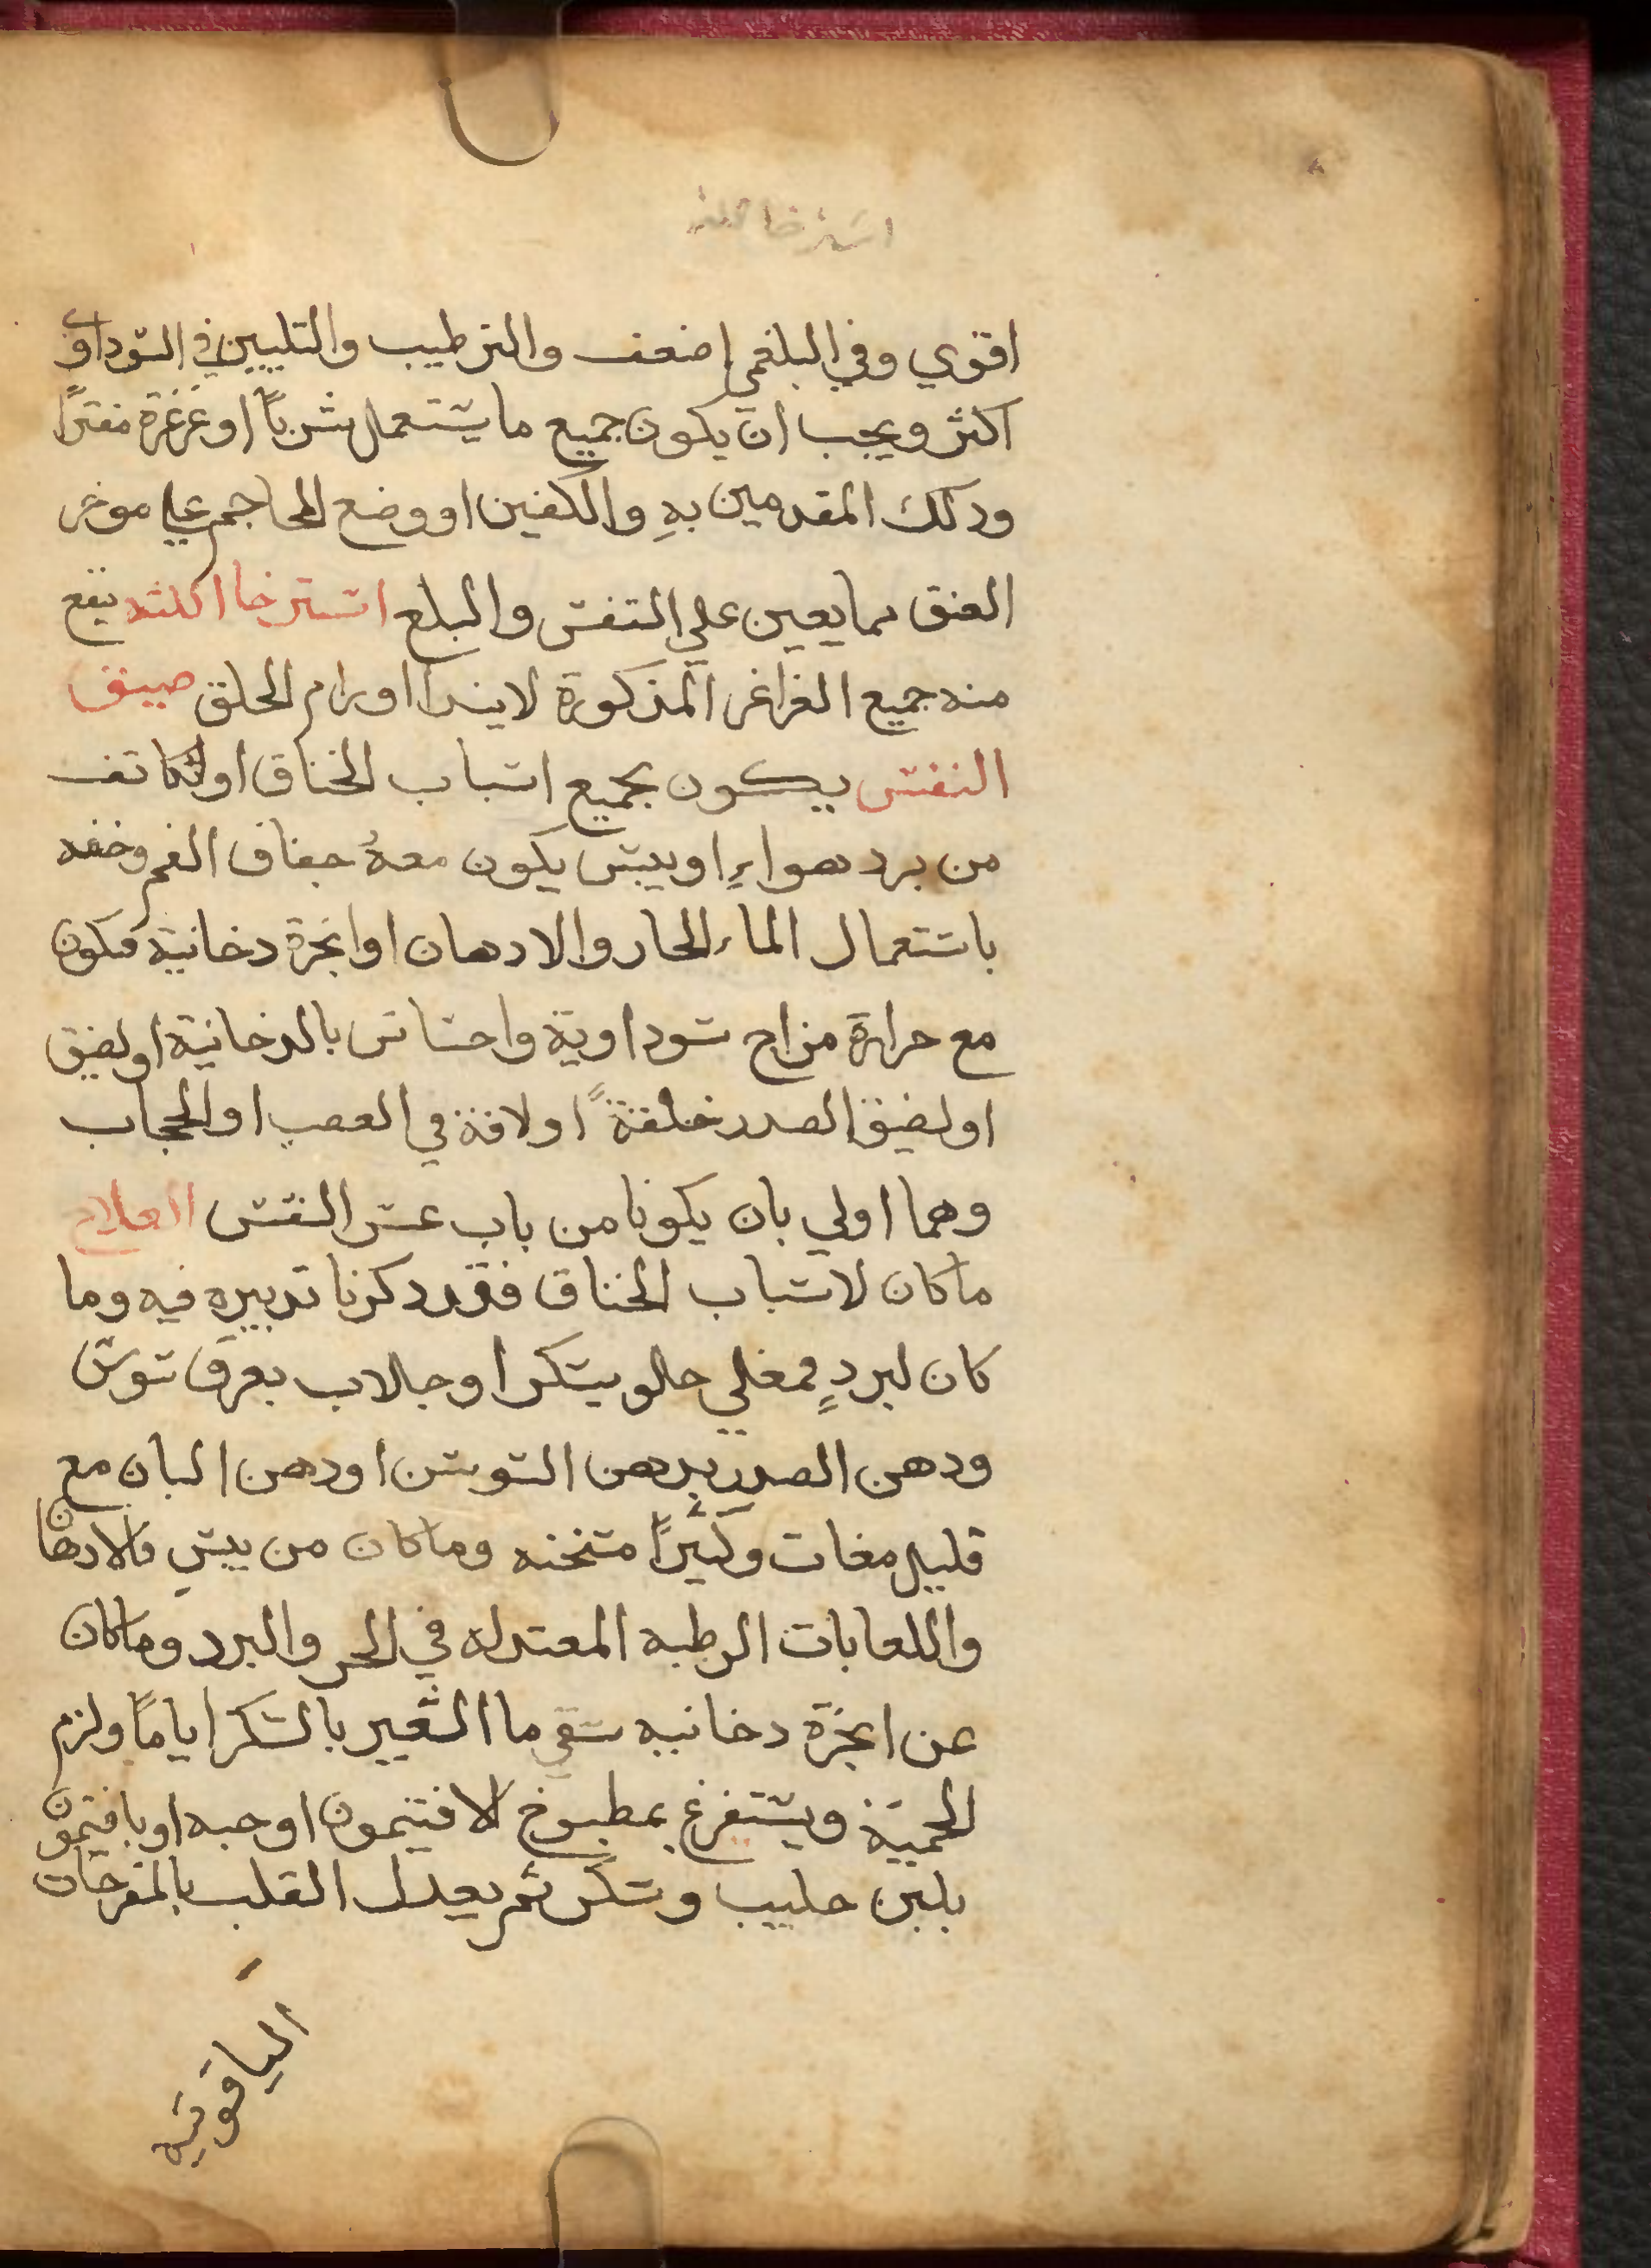 استرخا اللثه
اقوي وفي البلغمي اضعف والترطيب والتليين في السوداوي
اكثر ويجب ان يكون جميع ما يستعمل شرباً او غرغرة مفتراً
ودلك القدمين به والكفين او وضع المحاجم علي موخر
العنق مما يعين علي التنفس والبلع استرخا اللثه ينفع
منه جميع الغراغر المذكورة لابتدا اورام الحلق ضيق
النفس يكون بجميع اسباب الخناق او لتكاثف
من برد هواءٍ او يبس يكون معهُ جفاف الفم وخفه
باستعمال الماء الحار والادهان او ابخرة دخانية فيكون
مع حرارة مزاج سوداوية واحساس بالدخانية او لضيق
او لضيق الصدر خلقةً او لافة في العصب او الحجاب
وهما اولي بان يكونا من باب عسر النفس العلاج
ما كان لاسباب الخناق فقد ذكرنا تدبيره فيه وما
كان لبردٍ فمغلي حلو بسكر او جلاب بعرق سوس
ودهن الصدر بدهن السوسن او دهن البان مع
قليل مغات وكثيراً مسخنه وما كان من يبسٍ فالادهان
واللعابات الرطبه المعتدله في الحر والبرد وما كان
عن ابخرة دخانيه سقي ما الشعير بالسكر اياماً ولزم
الحمية ويستفرغ بمطبوخ الافتيمون او حبه او بافتيمون
بلبن حليب وسكر ثم يعدل القلب بالمفرحات
الياقوتيه